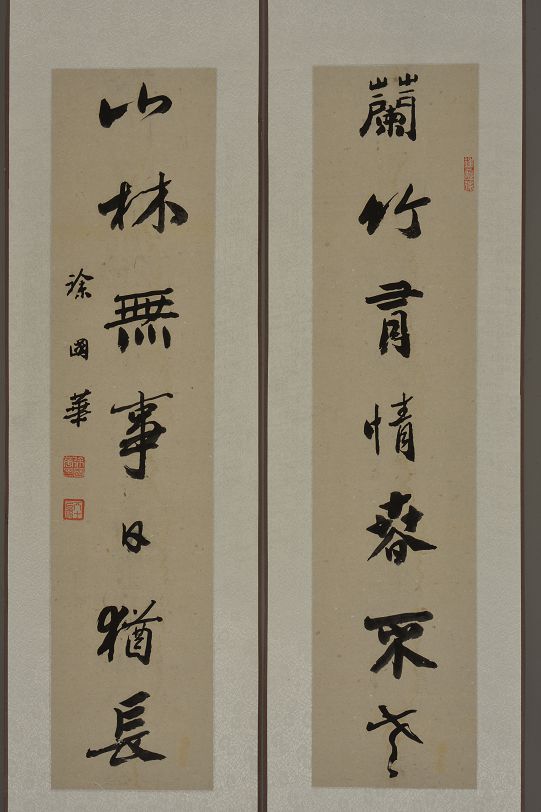 蘭竹有情春不老
山林無事日猶長
徐國華